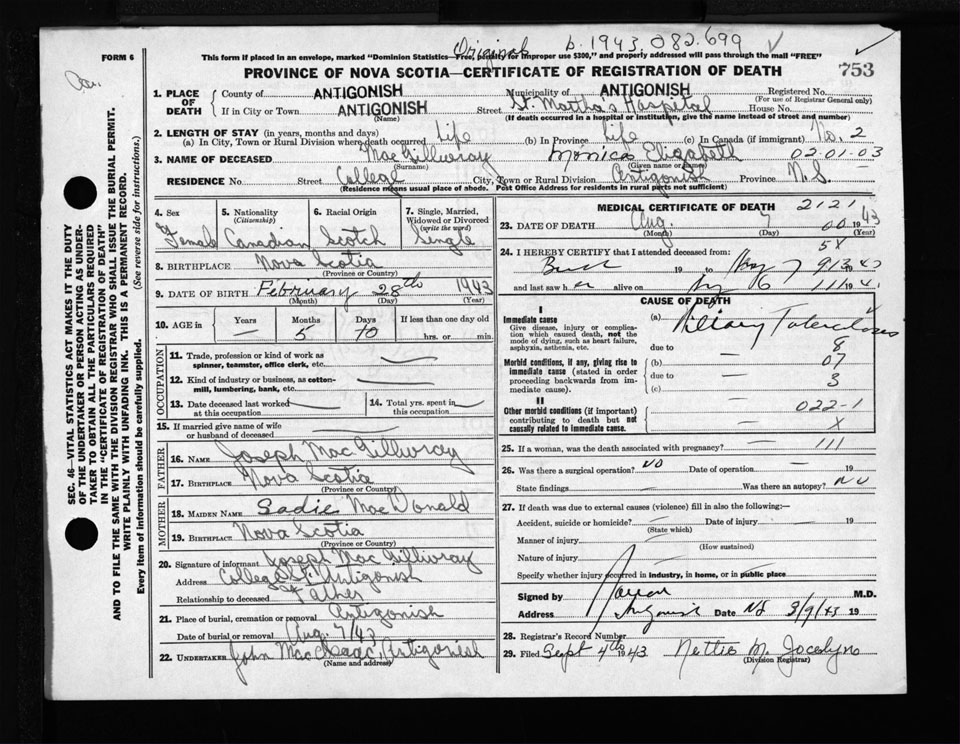 Original b. 1943. 082.699
FORM 6 This form if placed in an envelope, marked "Dominion Statistics—Free, penalty for improper use $300," and properly addressed will pass through the mail "FREE"
PROVINCE OF NOVA SCOTIA—CERTIFICATE OF REGISTRATION OF DEATH 753
1. PLACE OF DEATH County of ANTIGONISH Municipality of ANTIGONISH Registered No. (For use of Registrar General only)
If in City or Town ANTIGONISH (Name) Street St. Martha's Hospital House No.
(If death occurred in a hospital or institution, give the name instead of street and number)
2. LENGTH OF STAY (in years, months and days)
(a) In City, Town or Rural Division where death occurred Life (b) In Province Life (c) In Canada (if immigrant) No. 2
3. NAME OF DECEASED MacGillivray (Surname) Monica Elizabeth (Given name or names) 02.01.03
RESIDENCE No. Street College City, Town or Rural Division Antigonish Province N.S.
(Residence means usual place of abode. Post Office Address for residents in rural parts not sufficient)
4. Sex 5. Nationality (Citizenship) 6. Racial Origin 7. Single, Married, Widowed or Divorced (write the word)
Female Canadian Scotch Single
8. BIRTHPLACE Nova Scotia
(Province or Country)
9. DATE OF BIRTH February 28th 1943
(Month) (Day) (Year)
10. AGE in Years Months Days If less than one day old
— 5 10 hrs. or min.
OCCUPATION
11. Trade, profession or kind of work as spinner, teamster, office clerk, etc. —
12. Kind of industry or business, as cotton-mill, lumbering, bank, etc. —
13. Date deceased last worked at this occupation — 14. Total yrs. spent in this occupation —
15. If married give name of wife or husband of deceased —
FATHER
16. NAME Joseph MacGillivray
17. BIRTHPLACE Nova Scotia
(Province or Country)
MOTHER
18. MAIDEN NAME Sadie MacDonald
19. BIRTHPLACE Nova Scotia
(Province or Country)
20. Signature of informant Joseph MacGillivray
Address College St. Antigonish
Relationship to deceased Father
21. Place of burial, cremation or removal Antigonish
Date of burial or removal Aug. 7/43
22. UNDERTAKER John MacIsaac, Antigonish
(Name and address)
MEDICAL CERTIFICATE OF DEATH 2121
23. DATE OF DEATH Aug 7 00 1943
(Month) (Day) (Year)
5X
24. I HEREBY CERTIFY that I attended deceased from:
19 to Aug 7 913 1943
and last saw her alive on Aug 6 111 194
CAUSE OF DEATH
I
Immediate cause (a) Miliary Tuberculosis
Give disease, injury or complication which caused death, not the mode of dying, such as heart failure, asphyxia, asthenia, etc.
due to 8
Morbid conditions, if any, giving rise to immediate cause (stated in order proceeding backwards from immediate cause). (b) — 07
due to — 3
(c) —
II
Other morbid conditions (if important) contributing to death but not causally related to immediate cause. — 022-1
— X
25. If a woman, was the death associated with pregnancy? — 111
26. Was there a surgical operation? NO Date of operation — 19
State findings — Was there an autopsy? NO
27. If death was due to external causes (violence) fill in also the following:—
Accident, suicide or homicide? — Date of injury — 19
(State which)
Manner of injury —
(How sustained)
Nature of injury —
Specify whether injury occurred in industry, in home, or in public place
Signed by M.D.
Address Antigonish Date NS 3/9/43 19
28. Registrar's Record Number
29. Filed Sept 4th 1943 Nettie M. Jocelyn
(Division Registrar)
SEC. 46—VITAL STATISTICS ACT MAKES IT THE DUTY
OF THE UNDERTAKER OR PERSON ACTING AS UNDER-
TAKER TO OBTAIN ALL THE PARTICULARS REQUIRED
IN THE "CERTIFICATE OF REGISTRATION OF DEATH"
AND TO FILE THE SAME WITH THE DIVISION REGISTRAR WHO SHALL ISSUE THE BURIAL PERMIT.
WRITE PLAINLY WITH UNFADING INK. THIS IS A PERMANENT RECORD.
Every item of information should be carefully supplied. (See reverse side for instructions.)